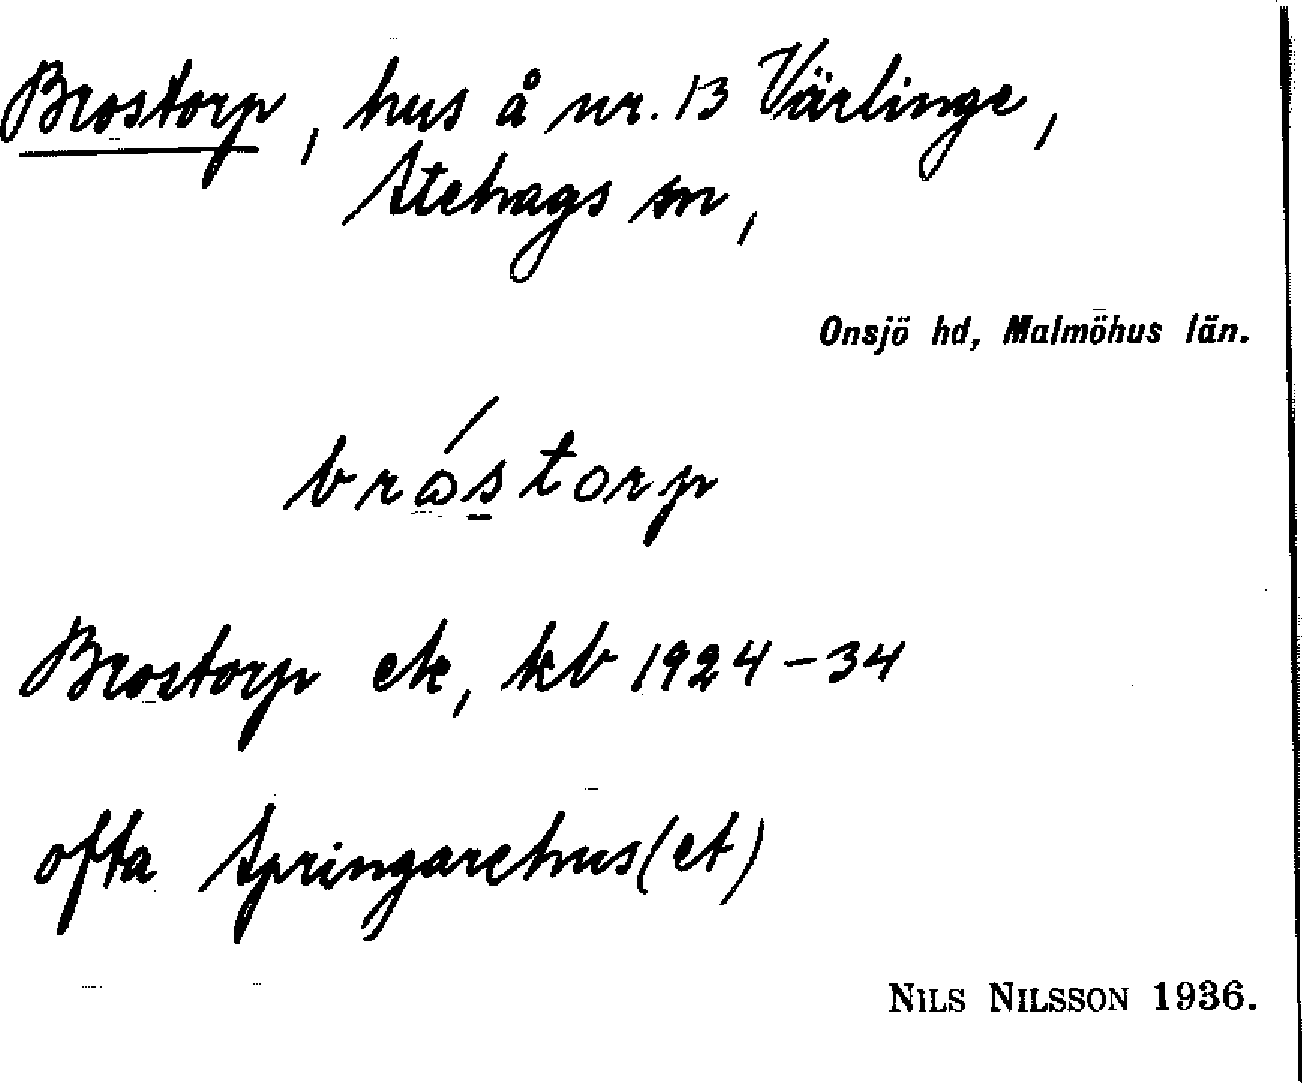 Brostorp, hus å nr. 13 Värlinge,
Stehags sn,
Onsjö hd, Malmöhus län.
bróstorp
Brostorp ek, kb 1924–34
ofta Springarehus(et)
NILS NILSSON 1936.